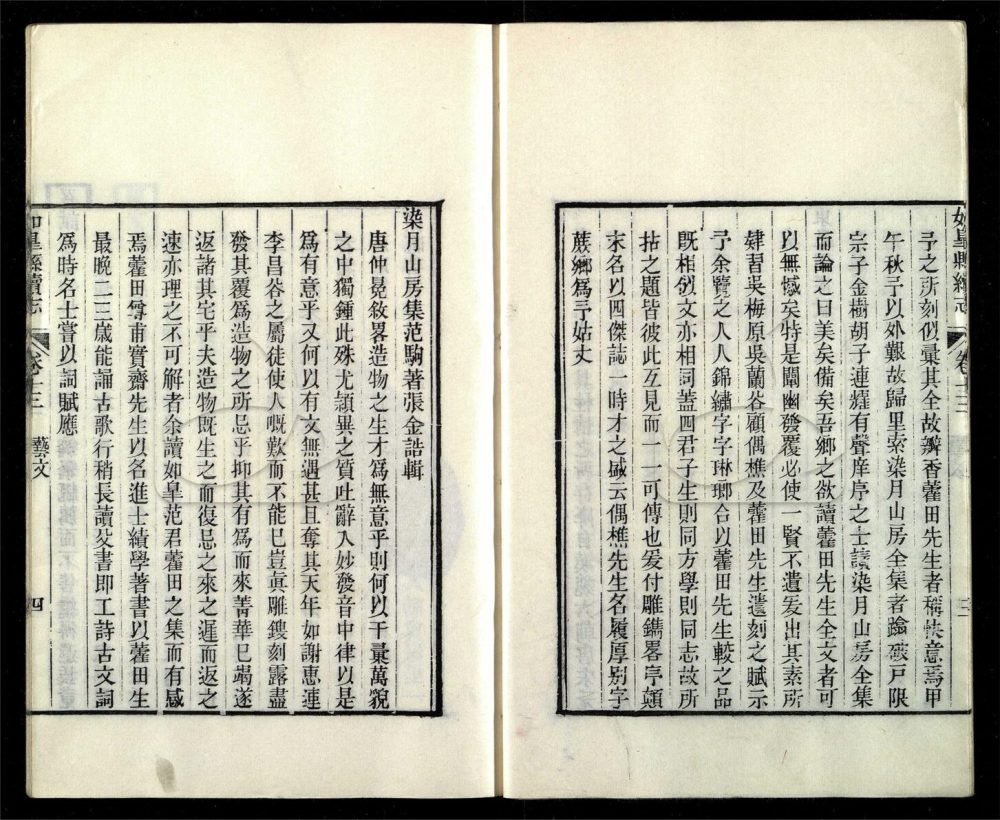 如皋縣續志 卷十三 三
予之所刻似彙其全故瓣香藿田先生者稱快意焉甲
午秋予以外艱故歸里索染月山房全集者踰破戸限
宗子金樹胡子連耀有聲庠序之士讀染月山房全集
而論之曰美矣備矣吾鄉之欲讀藿田先生全文者可
以無憾矣特是闡幽發覆必使一賢不遺爰出其素所
肄習吳梅原吳蘭谷顧偶樵及藿田先生遺刻之賦示
予余覽之人人錦繡字字琳瑯合以藿田先生較之品
既相敵文亦相同蓋四君子生則同方學則同志故所
拈之題皆彼此互見而一一可傳也爰付雕鐫畧序顛
末名以四傑誌一時才之盛云偶樵先生名履厚别字
蔟鄉爲予姑丈
染月山房集范駒著張金誥輯
唐仲冕敘畧造物之生才爲無意乎則何以千彙萬貌
之中獨鍾此殊尤頴異之質吐辭入妙發音中律以是
爲有意乎又何以有文無遇甚且奪其天年如謝惠連
李昌谷之屬徒使人嘅歎而不能已豈眞雕鎪刻露盡
發其覆爲造物之所忌乎抑其有爲而來菁華已竭遂
返諸其宅乎夫造物既生之而復忌之來之遲而返之
速亦理之不可解者余讀如皐范君藿田之集而有感
焉藿田尊甫實齋先生以名進士績學著書以藿田生
最晚二三歲能誦古歌行稍長讀父書即工詩古文詞
爲時名士嘗以詞賦應
如皋縣續志 卷十三 藝文 四